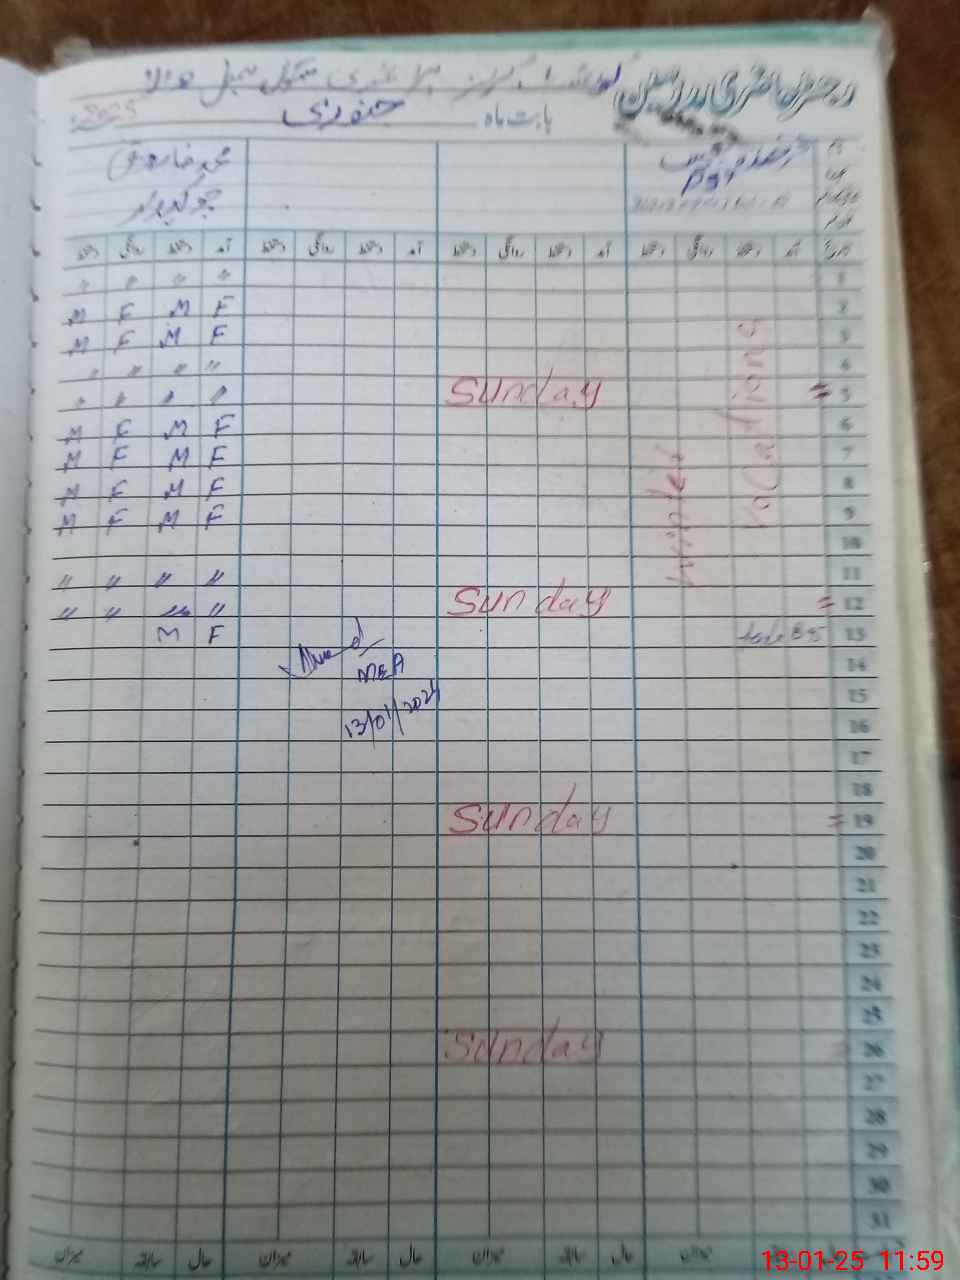 رجسٹر حاضری مدرسین گورنمنٹ پرائمری سکول
بابت ماہ جنوری 2025
محمد فاروق
چوکیدار
آمد دستخط روانگی دستخط آمد دستخط روانگی دستخط آمد دستخط روانگی دستخط آمد دستخط روانگی دستخط
1 〃 〃 〃 〃
2 F M F M
3 F M F M
4 〃 〃 〃 〃
5 = Sunday 〃 〃 〃 〃
6 F M F M
7 F M F M
8 F M F M
9 F M F M
10
11 〃 〃 〃 〃
12 = Sunday 〃 〃 〃 〃
13 F M
Winter
Vacations
MEA
13/01/2025
14
15
16
17
18
19 = Sunday
20
21
22
23
24
25
26 = Sunday
27
28
29
30
31
حال سابقہ میزان حال سابقہ میزان حال سابقہ میزان حال سابقہ میزان
13-01-25 11:59